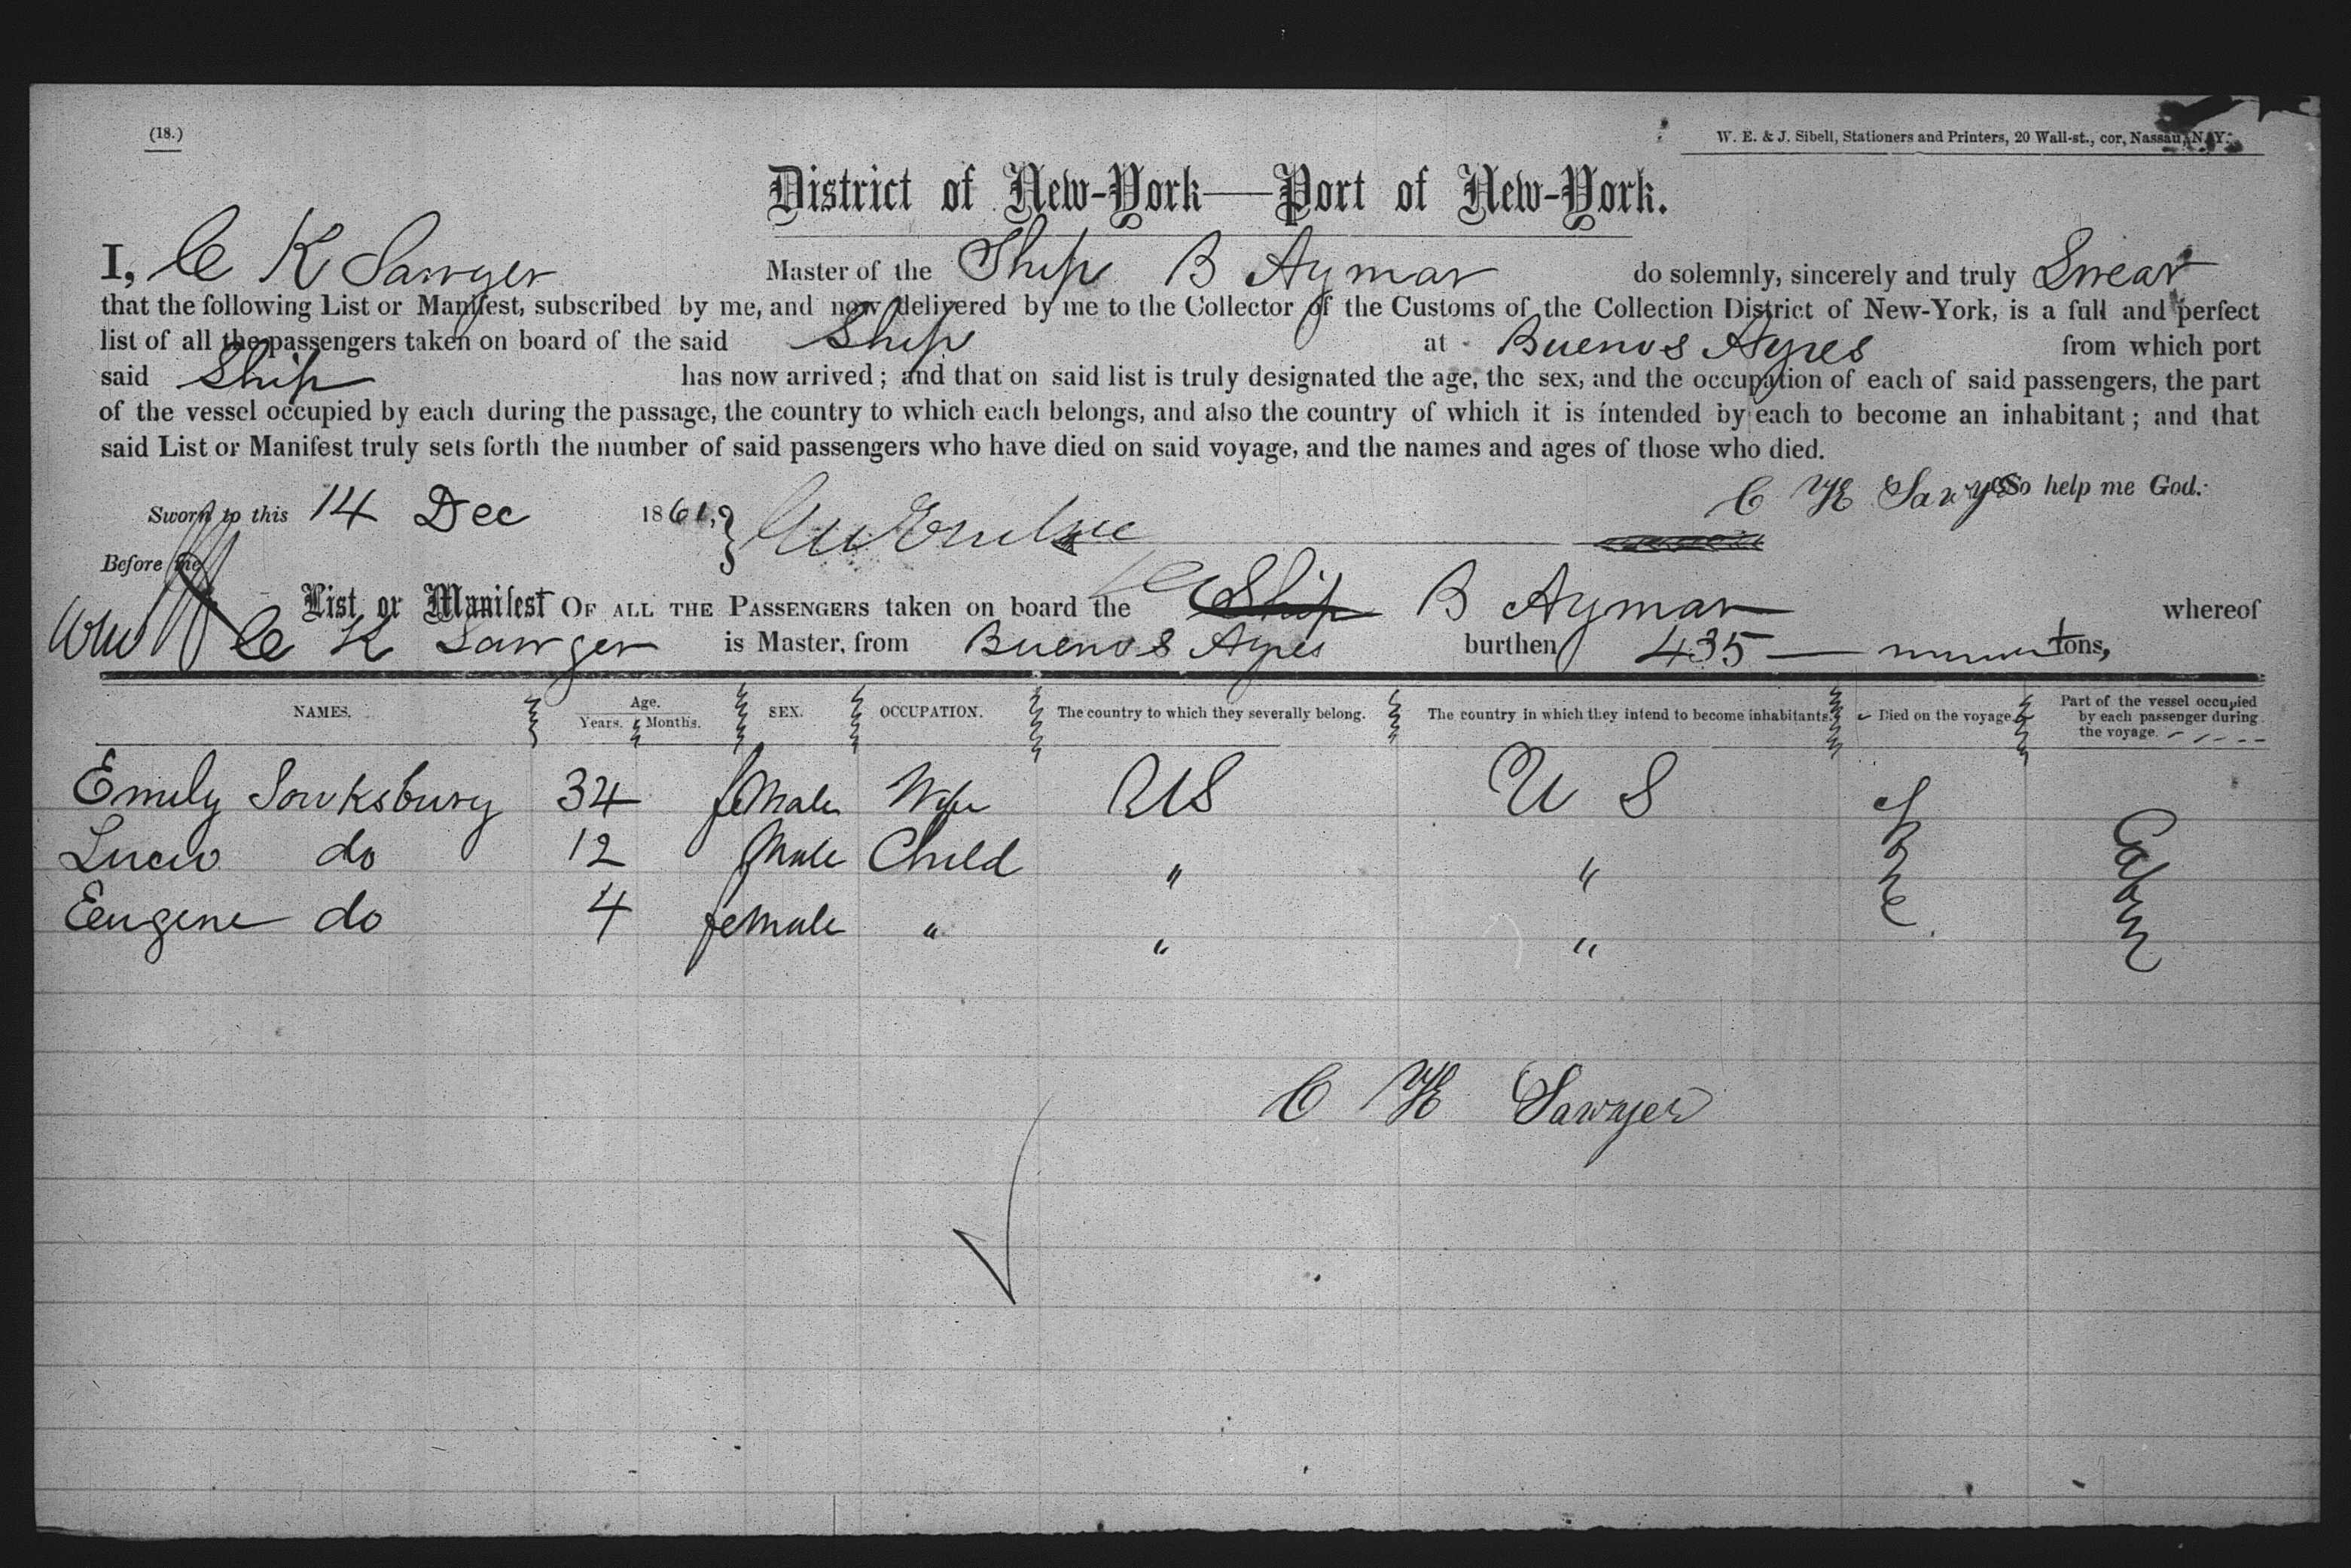 (18.)
W. E. & J. Sibell, Stationers and Printers, 20 Wall-st., cor, Nassau, N. Y.
District of New-York—Port of New-York.
I, C K Sawyer Master of the Ship B Aymar do solemnly, sincerely and truly Swear
that the following List or Manifest, subscribed by me, and now delivered by me to the Collector of the Customs of the Collection District of New-York, is a full and perfect
list of all the passengers taken on board of the said Ship at Buenos Ayres from which port
said Ship has now arrived; and that on said list is truly designated the age, the sex, and the occupation of each of said passengers, the part
of the vessel occupied by each during the passage, the country to which each belongs, and also the country of which it is intended by each to become an inhabitant; and that
said List or Manifest truly sets forth the number of said passengers who have died on said voyage, and the names and ages of those who died.
C K Sawyer So help me God.
Sworn to this 14 Dec 1861,
Before me
List or Manifest OF ALL THE PASSENGERS taken on board the Ship B Aymar whereof
C K Sawyer is Master, from Buenos Ayres burthen 435 tons,
NAMES. Age. Years. Months. SEX. OCCUPATION. The country to which they severally belong. The country in which they intend to become inhabitants. Died on the voyage. Part of the vessel occupied by each passenger during the voyage.
Emily Sowksbury 34 female Wife US U S
do 12 Male Child " "
Eeugene do 4 female " " "
Cabin
C K Sawyer